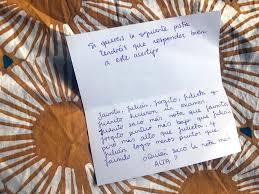 Si quereis la siguiente pista
tendréis que responder bien
a este acertijo
Jaimito, Julián, Jorgito, Julieta y
Juanito hicieron un examen.
Juanito sacó más nota que Jaimito
Jorgito puntuó más bajo que Julián
pero más alto que Julieta y
Julián logró menos puntos que
Jaimito. ¿Quién sacó la nota más
ALTA?